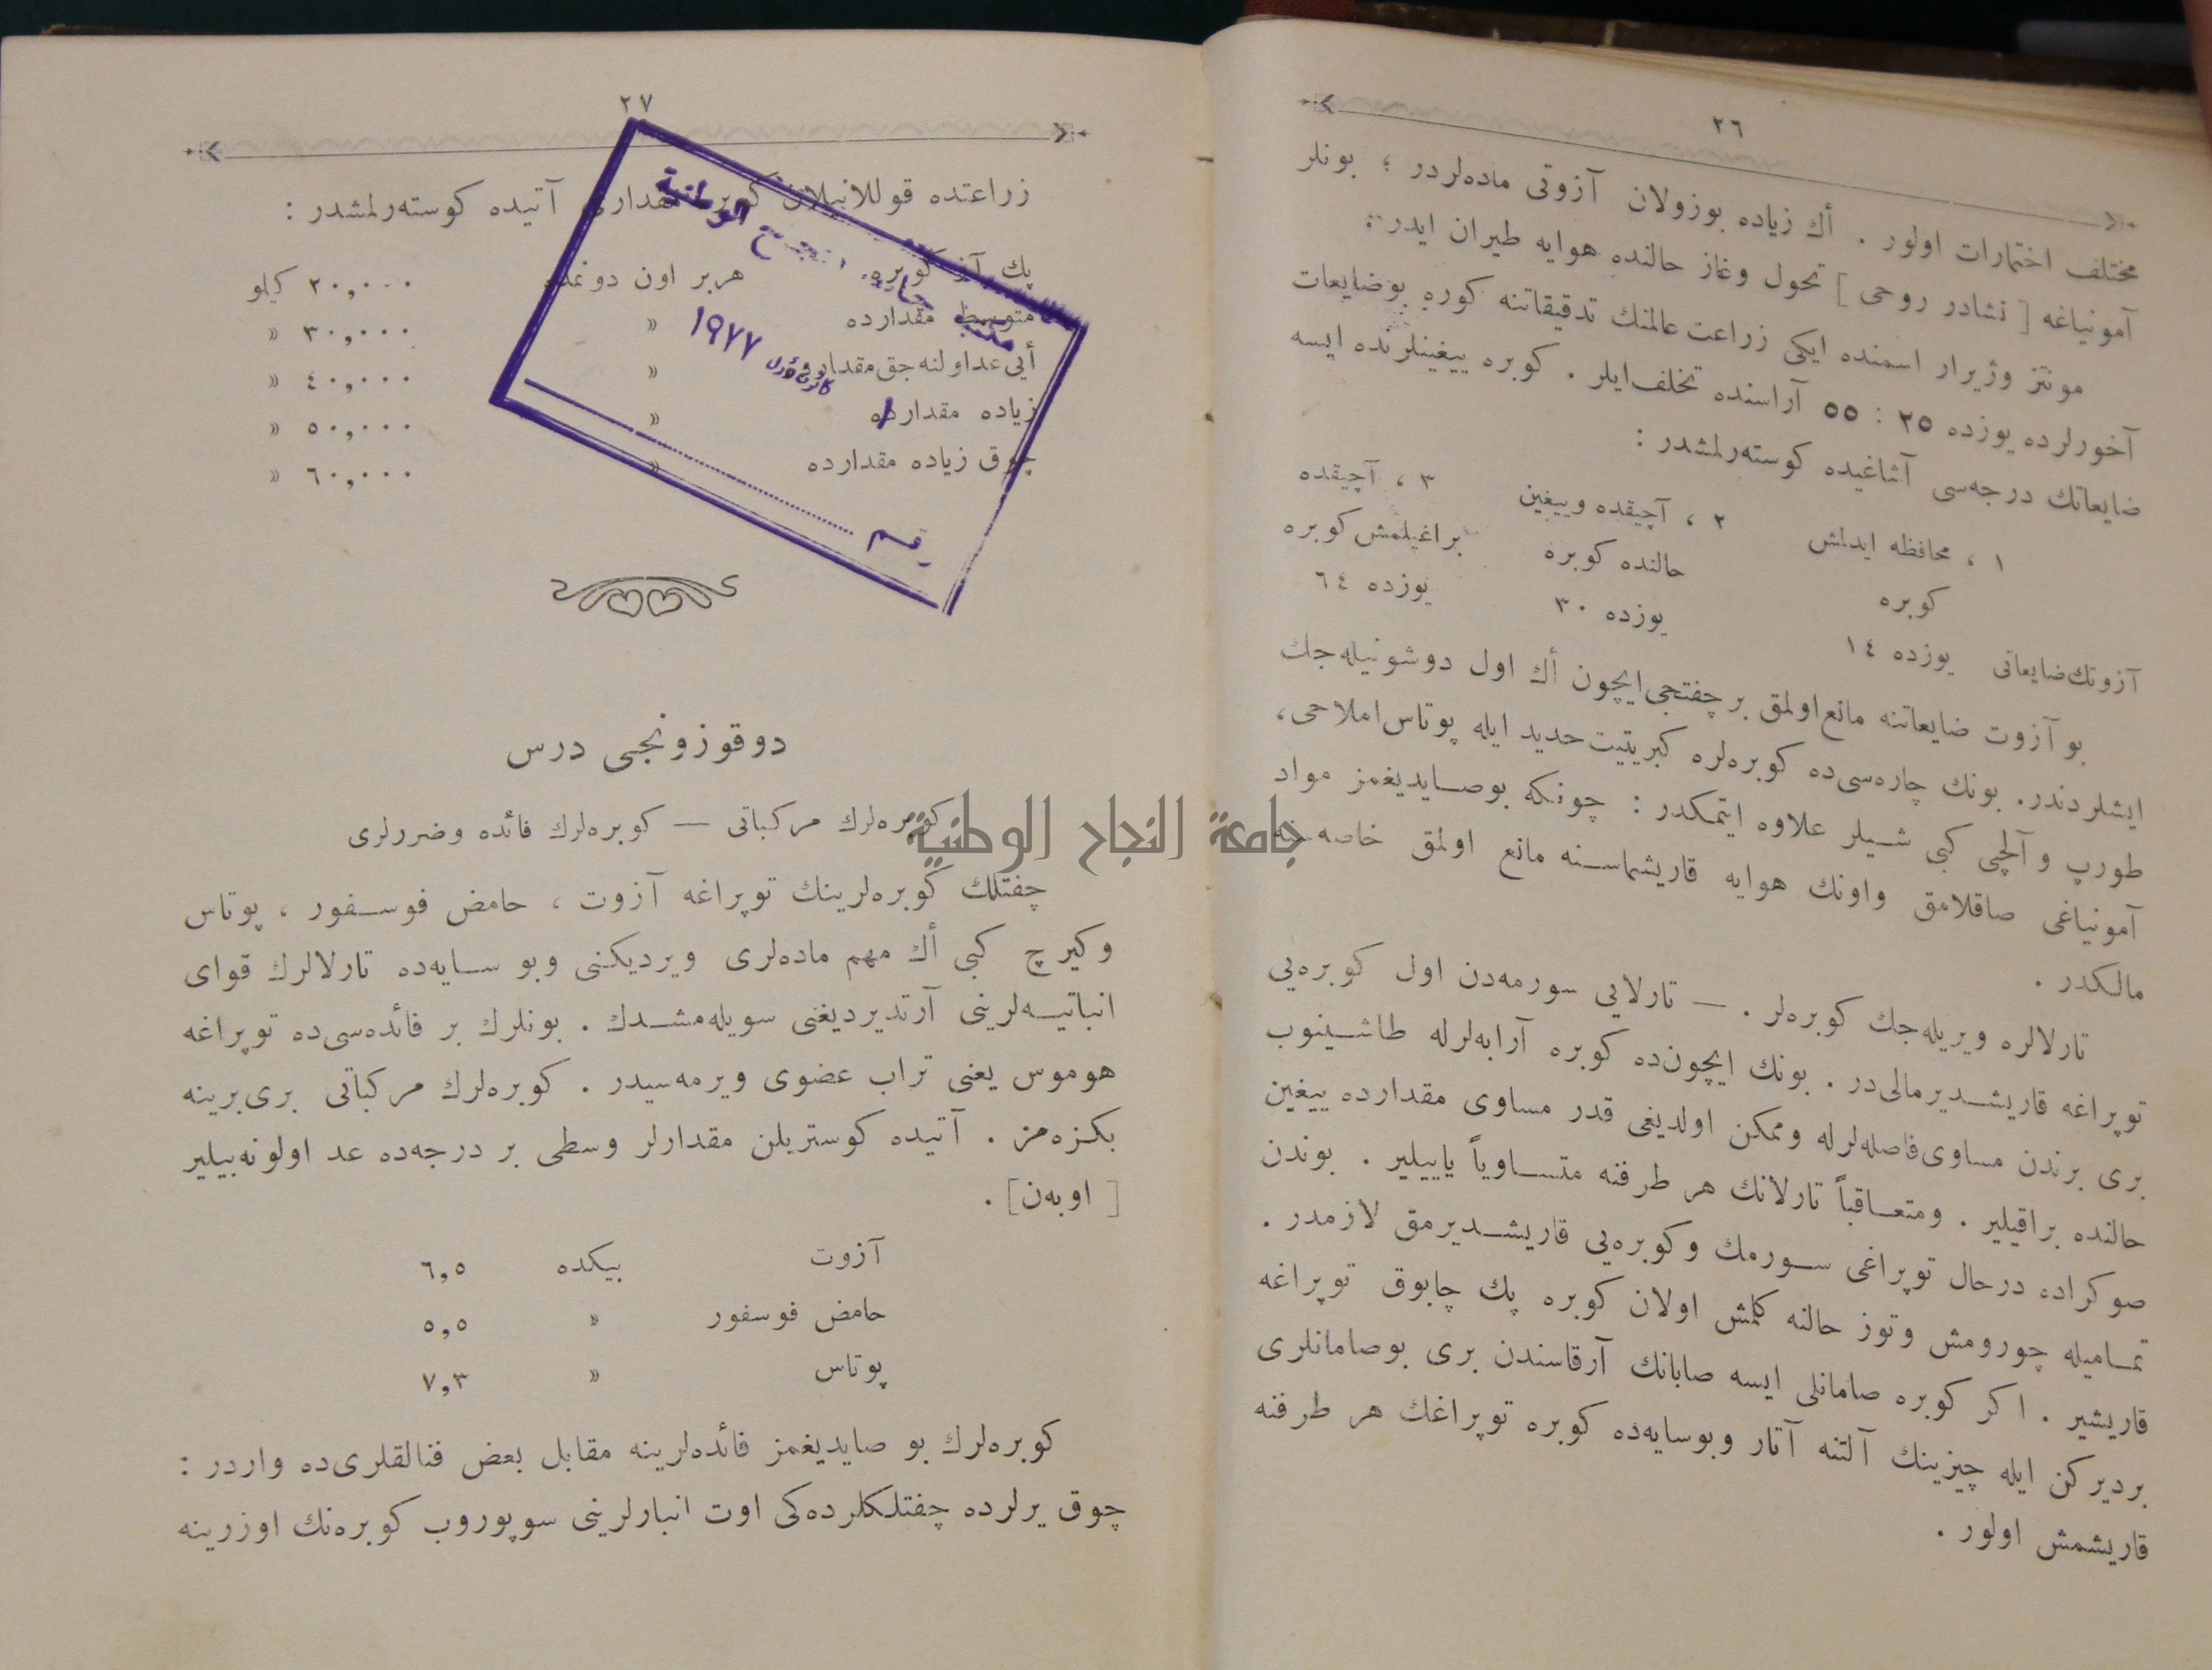 ٢٦
مختلف اختمارات اولور . أك زياده بوزولان آزوتی ماده‌لردر ؛ بونلر
آمونياغه [ نشادر روحی ] تحول وغاز حالنده هوايه طيران ايدر .
مونتز وژيرار اسمنده ايكی زراعت عالمنك تدقيقاتنه كوره بوضايعات
آخورلرده يوزده ٢٥ : ٥٥ آراسنده تخلف‌ايلر . كوبره ييغينلرنده ايسه
ضايعاتك درجه‌سی آشاغيده كوسته‌رلمشدر :
١ ، محافظه ايدلمش ٢ ، آچيقده وييغين ٣ ، آچيقده
كوبره حالنده كوبره براغيلمش كوبره
آزوتك‌ضايعاتی يوزده ١٤ يوزده ٣٠ يوزده ٦٤
بو آزوت ضايعاتنه مانع‌اولمق بر چفتجی‌ايچون أك اول دوشونيله‌جك
ايشلردندر. بونك چاره‌سی‌ده كوبره‌لره كبريتيت‌حديد ايله پوتاس‌املاحی،
طورپ و آلچی كبی شيلر علاوه ايتمكدر : چونكه بوصايديغمز مواد
آمونياغی صاقلامق واونك هوايه قاريشماسنه مانع اولمق خاصه‌سنه
مالكدر .
تارلالره ويريله‌جك كوبره‌لر . — تارلايی سورمه‌دن اول كوبره‌يی
توپراغه قاريشديرمالی‌در . بونك ايچون‌ده كوبره آرابه‌لرله طاشينوب
بری برندن مساوی‌فاصله‌لرله وممكن اولديغی قدر مساوی مقدارده ييغين
حالنده براقيلير . ومتعاقباً تارلانك هر طرفنه متساوياً ياييلير . بوندن
صوكراده درحال توپراغی سورمك وكوبره‌يی قاريشديرمق لازمدر .
تماميله چورومش وتوز حالنه كلمش اولان كوبره پك چابوق توپراغه
قاريشير . اكر كوبره صامانلی ايسه صابانك آرقاسندن بری بوصامانلری
برديركن ايله چيزينك آلتنه آتار وبوسايه‌ده كوبره توپراغك هر طرفنه
قاريشمش اولور .
٢٧
زراعتده قوللانيلان كوبره مقداری آتيده كوسته‌رلمشدر :
پك آز كوبره. هربر اون دونمه ٢٠,٠٠٠ كيلو
متوسط مقدارده » ٣٠,٠٠٠ »
أيی عداولنه جق‌مقدارده » ٤٠,٠٠٠ »
زياده مقدارده » ٥٠,٠٠٠ »
چوق زياده مقدارده » ٦٠,٠٠٠ »
النجاح الوطنية
مكتبة
١٩٧٧
رقم
دوقوزونجی درس
كوبره‌لرك مركباتی — كوبره‌لرك فائده وضررلری
چفتلك كوبره‌لرينك توپراغه آزوت ، حامض فوسفور ، پوتاس
وكيرچ كبی أك مهم ماده‌لری ويرديكنی وبو سايه‌ده تارلالرك قوای
انباتيه‌لرينی آرتديرديغنی سويله‌مشدك . بونلرك بر فائده‌سی‌ده توپراغه
هوموس يعنی تراب عضوی ويرمه‌سيدر . كوبره‌لرك مركباتی بری‌برينه
بكزه‌مز . آتيده كوستريلن مقدارلر وسطی بر درجه‌ده عد اولونه‌بيلير
[ اوبه‌ن] .
آزوت بيكده ٦,٥
حامض فوسفور » ٥,٥
پوتاس » ٧,٣
كوبره‌لرك بو صايديغمز فائده‌لرينه مقابل بعض فنالقلری‌ده واردر :
چوق يرلرده چفتلكلرده‌كی اوت انبارلرينی سوپوروب كوبره‌نك اوزرينه
جامعة النجاح الوطنية